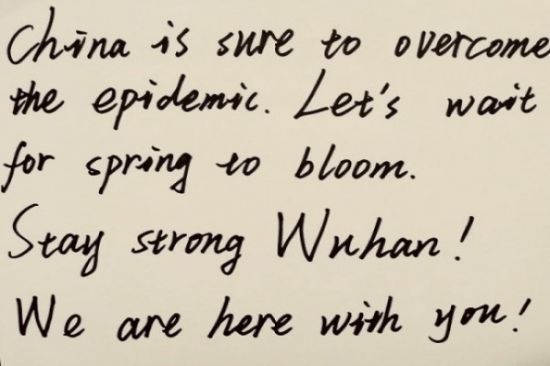 China is sure to overcome
the epidemic. Let's wait
for spring to bloom.
Stay strong Wuhan!
We are here with you!